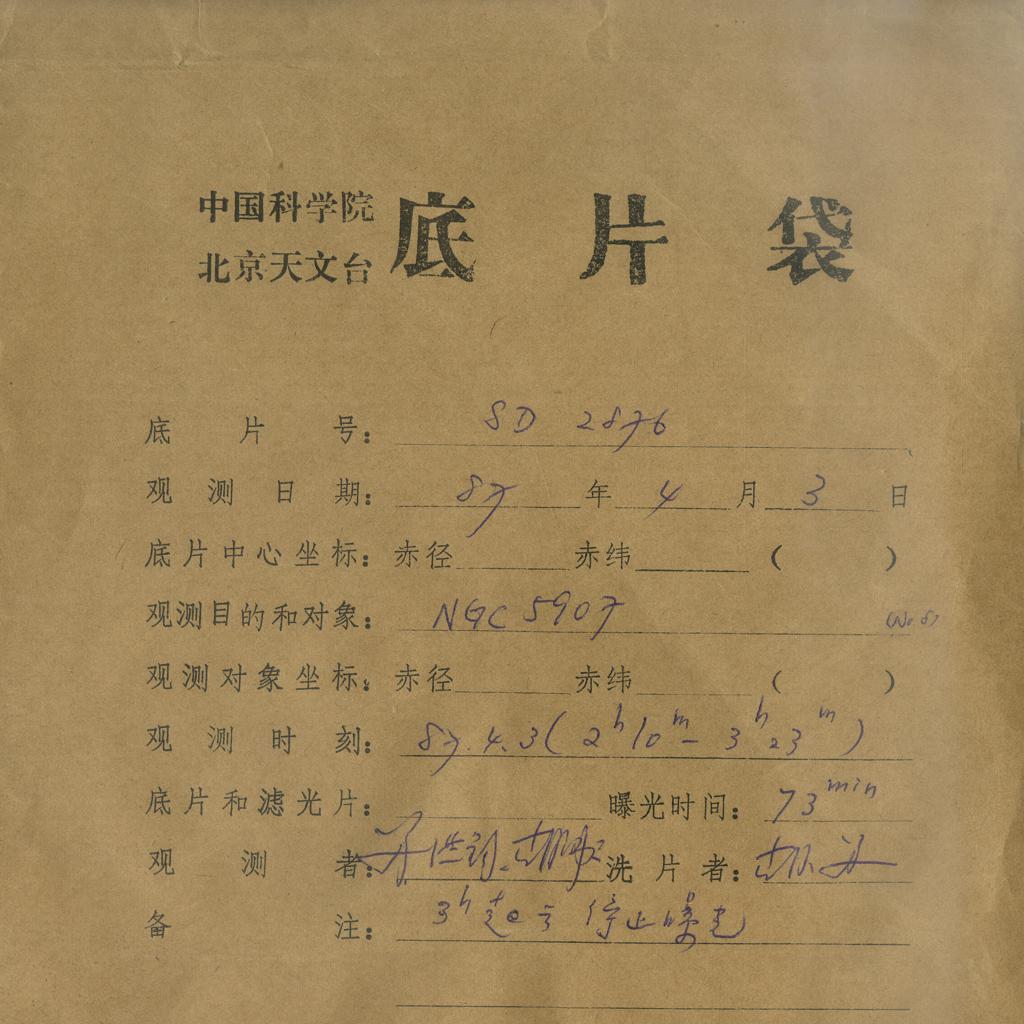 中国科学院
北京天文台
底片袋
底片号: SD 2876
观测日期: 87 年 4 月 3 日
底片中心坐标: 赤径 赤纬 ( )
观测目的和对象: NGC 5907 (No 8)
观测对象坐标: 赤径 赤纬 ( )
观测时刻: 87.4.3 ( 2h10m - 3h23m )
底片和滤光片: 曝光时间: 73min
观测者: 洗片者:
备注: 3h起云 停止曝光